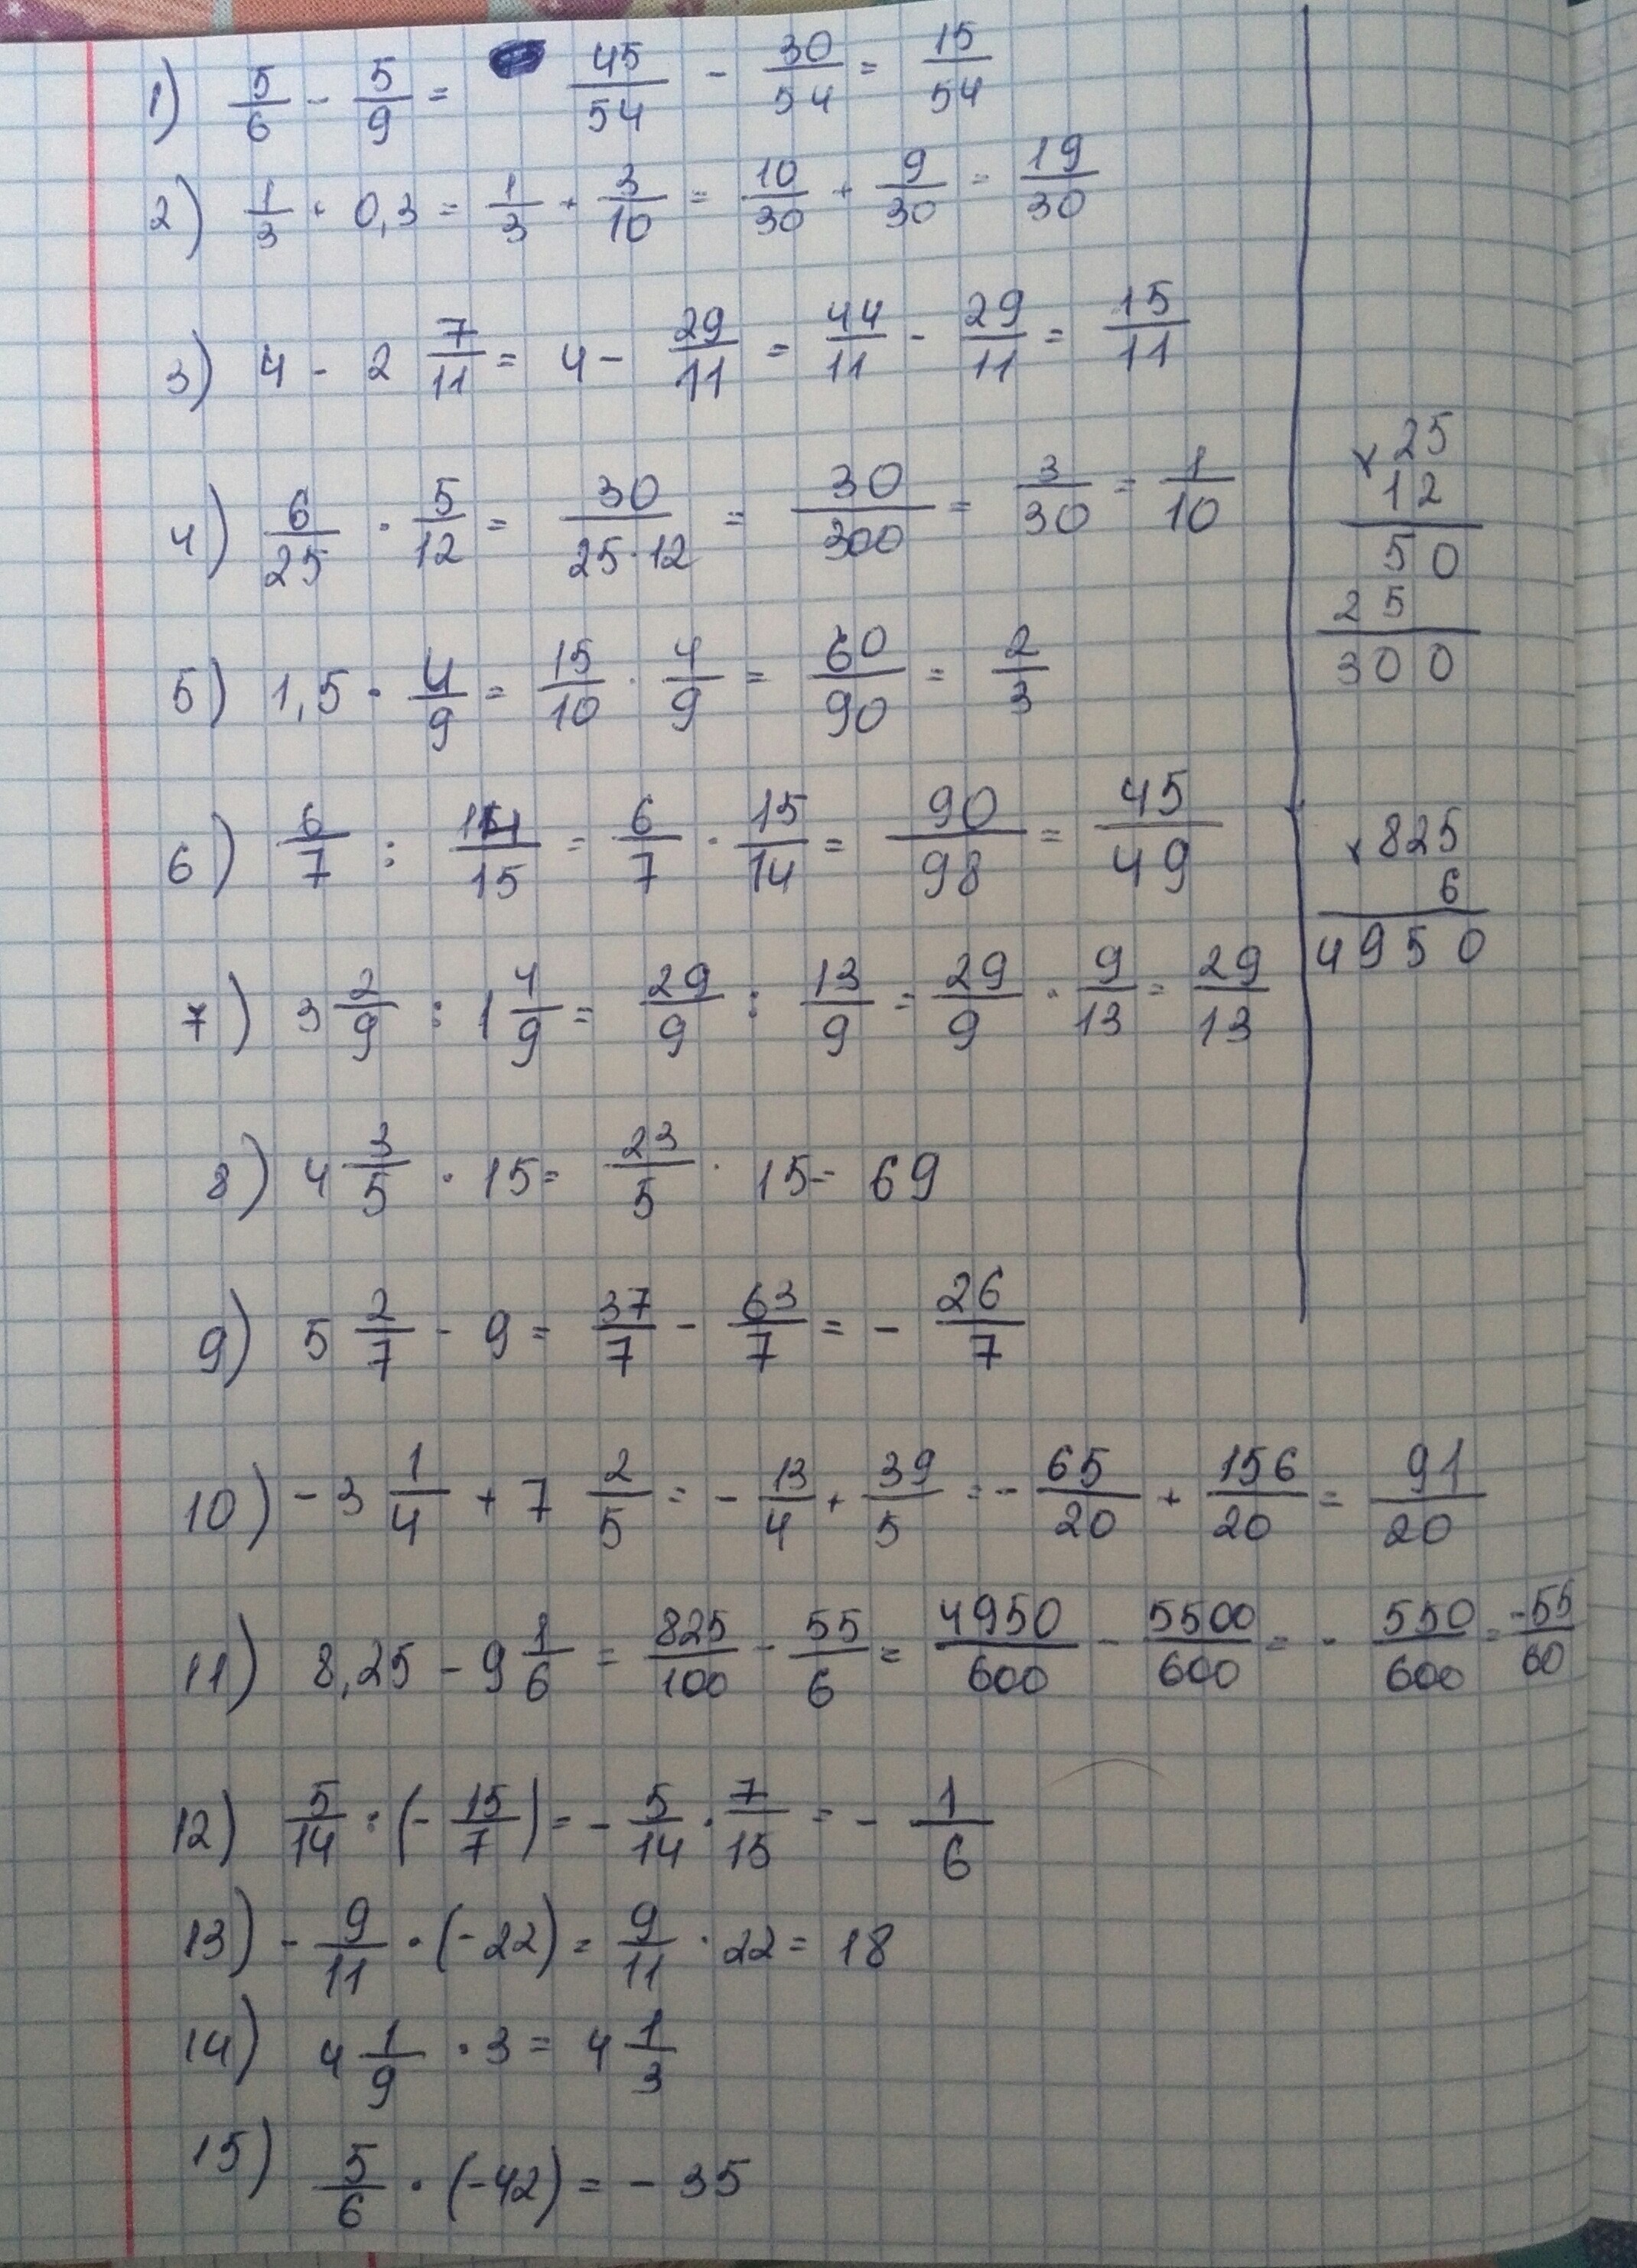 1) 5/6 - 5/9 = 45/54 - 30/54 = 15/54
2) 1/3 + 0,3 = 1/3 + 3/10 = 10/30 + 9/30 = 19/30
3) 4 - 2 7/11 = 4 - 29/11 = 44/11 - 29/11 = 15/11
4) 6/25 · 5/12 = 30/25·12 = 30/300 = 3/30 = 1/10
5) 1,5 · 4/9 = 15/10 · 4/9 = 60/90 = 2/3
6) 6/7 : 14/15 = 6/7 · 15/14 = 90/98 = 45/49
7) 3 2/9 : 1 4/9 = 29/9 : 13/9 = 29/9 · 9/13 = 29/13
8) 4 3/5 · 15 = 23/5 · 15 = 69
9) 5 2/7 - 9 = 37/7 - 63/7 = - 26/7
10) - 3 1/4 + 7 2/5 = - 13/4 + 39/5 = - 65/20 + 156/20 = 91/20
11) 8,25 - 9 1/6 = 825/100 - 55/6 = 4950/600 - 5500/600 = - 550/600 = -55/60
12) 5/14 : (- 15/7) = - 5/14 · 7/15 = - 1/6
13) - 9/11 · (-22) = 9/11 · 22 = 18
14) 4 1/9 · 3 = 4 1/3
15) 5/6 · (-42) = - 35
× 25
12
50
25
300
× 825
6
4950